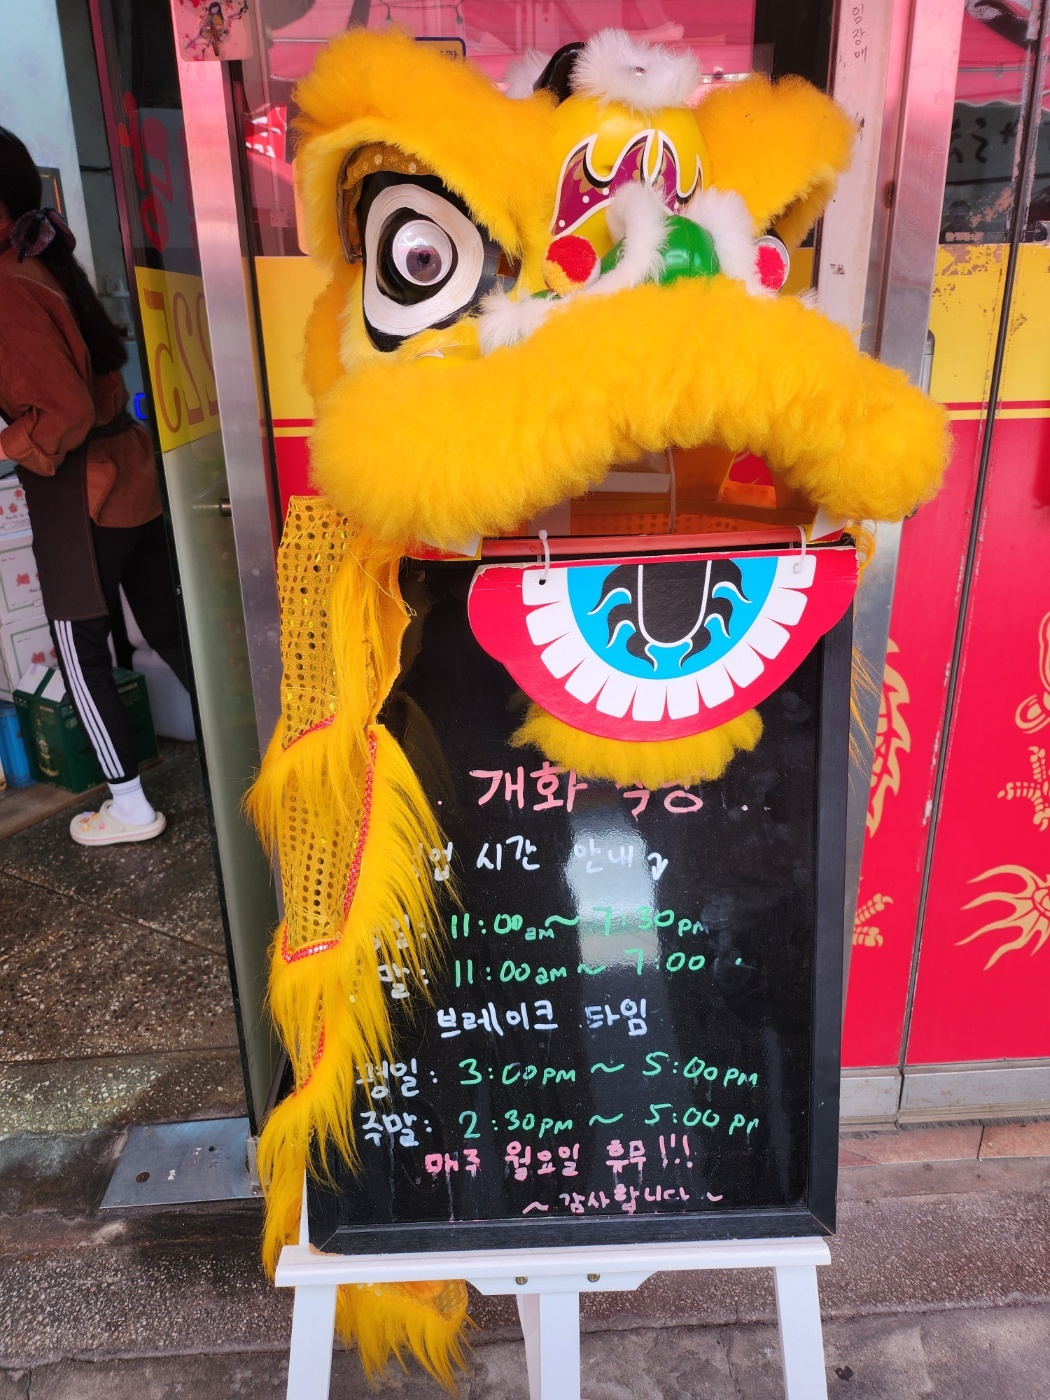 개화
업 시간 안내
11:00am ~ 7:30pm
말: 11:00am ~ 7:00
브레이크 타임
평일: 3:00pm ~ 5:00pm
주말: 2:30pm ~ 5:00 p
매주 월요일 휴무!!!
~ 감사합니다 ~